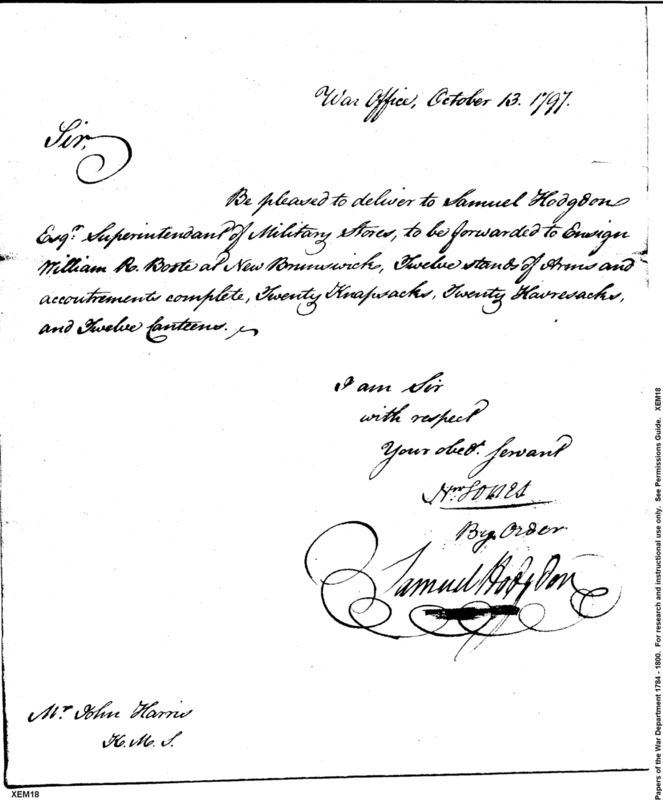 War Office, October 13. 1797.
Sir,
Be pleased to deliver to Samuel Hodgdon
Esqr. Superintendant of Military Stores, to be forwarded to Ensign
William R. Boote at New Brunswick, Twelve stands of Arms and
accoutrements complete, Twenty Knapsacks, Twenty Havresacks,
and Twelve Canteens.
I am Sir
with respect
Your obedt. Servant
Jones
By Order
Samuel Hodgdon
Mr. John Harris
K. M. S.
XEM18
Papers of the War Department 1784 - 1800. For research and instructional use only. See Permissions Guide. XEM18